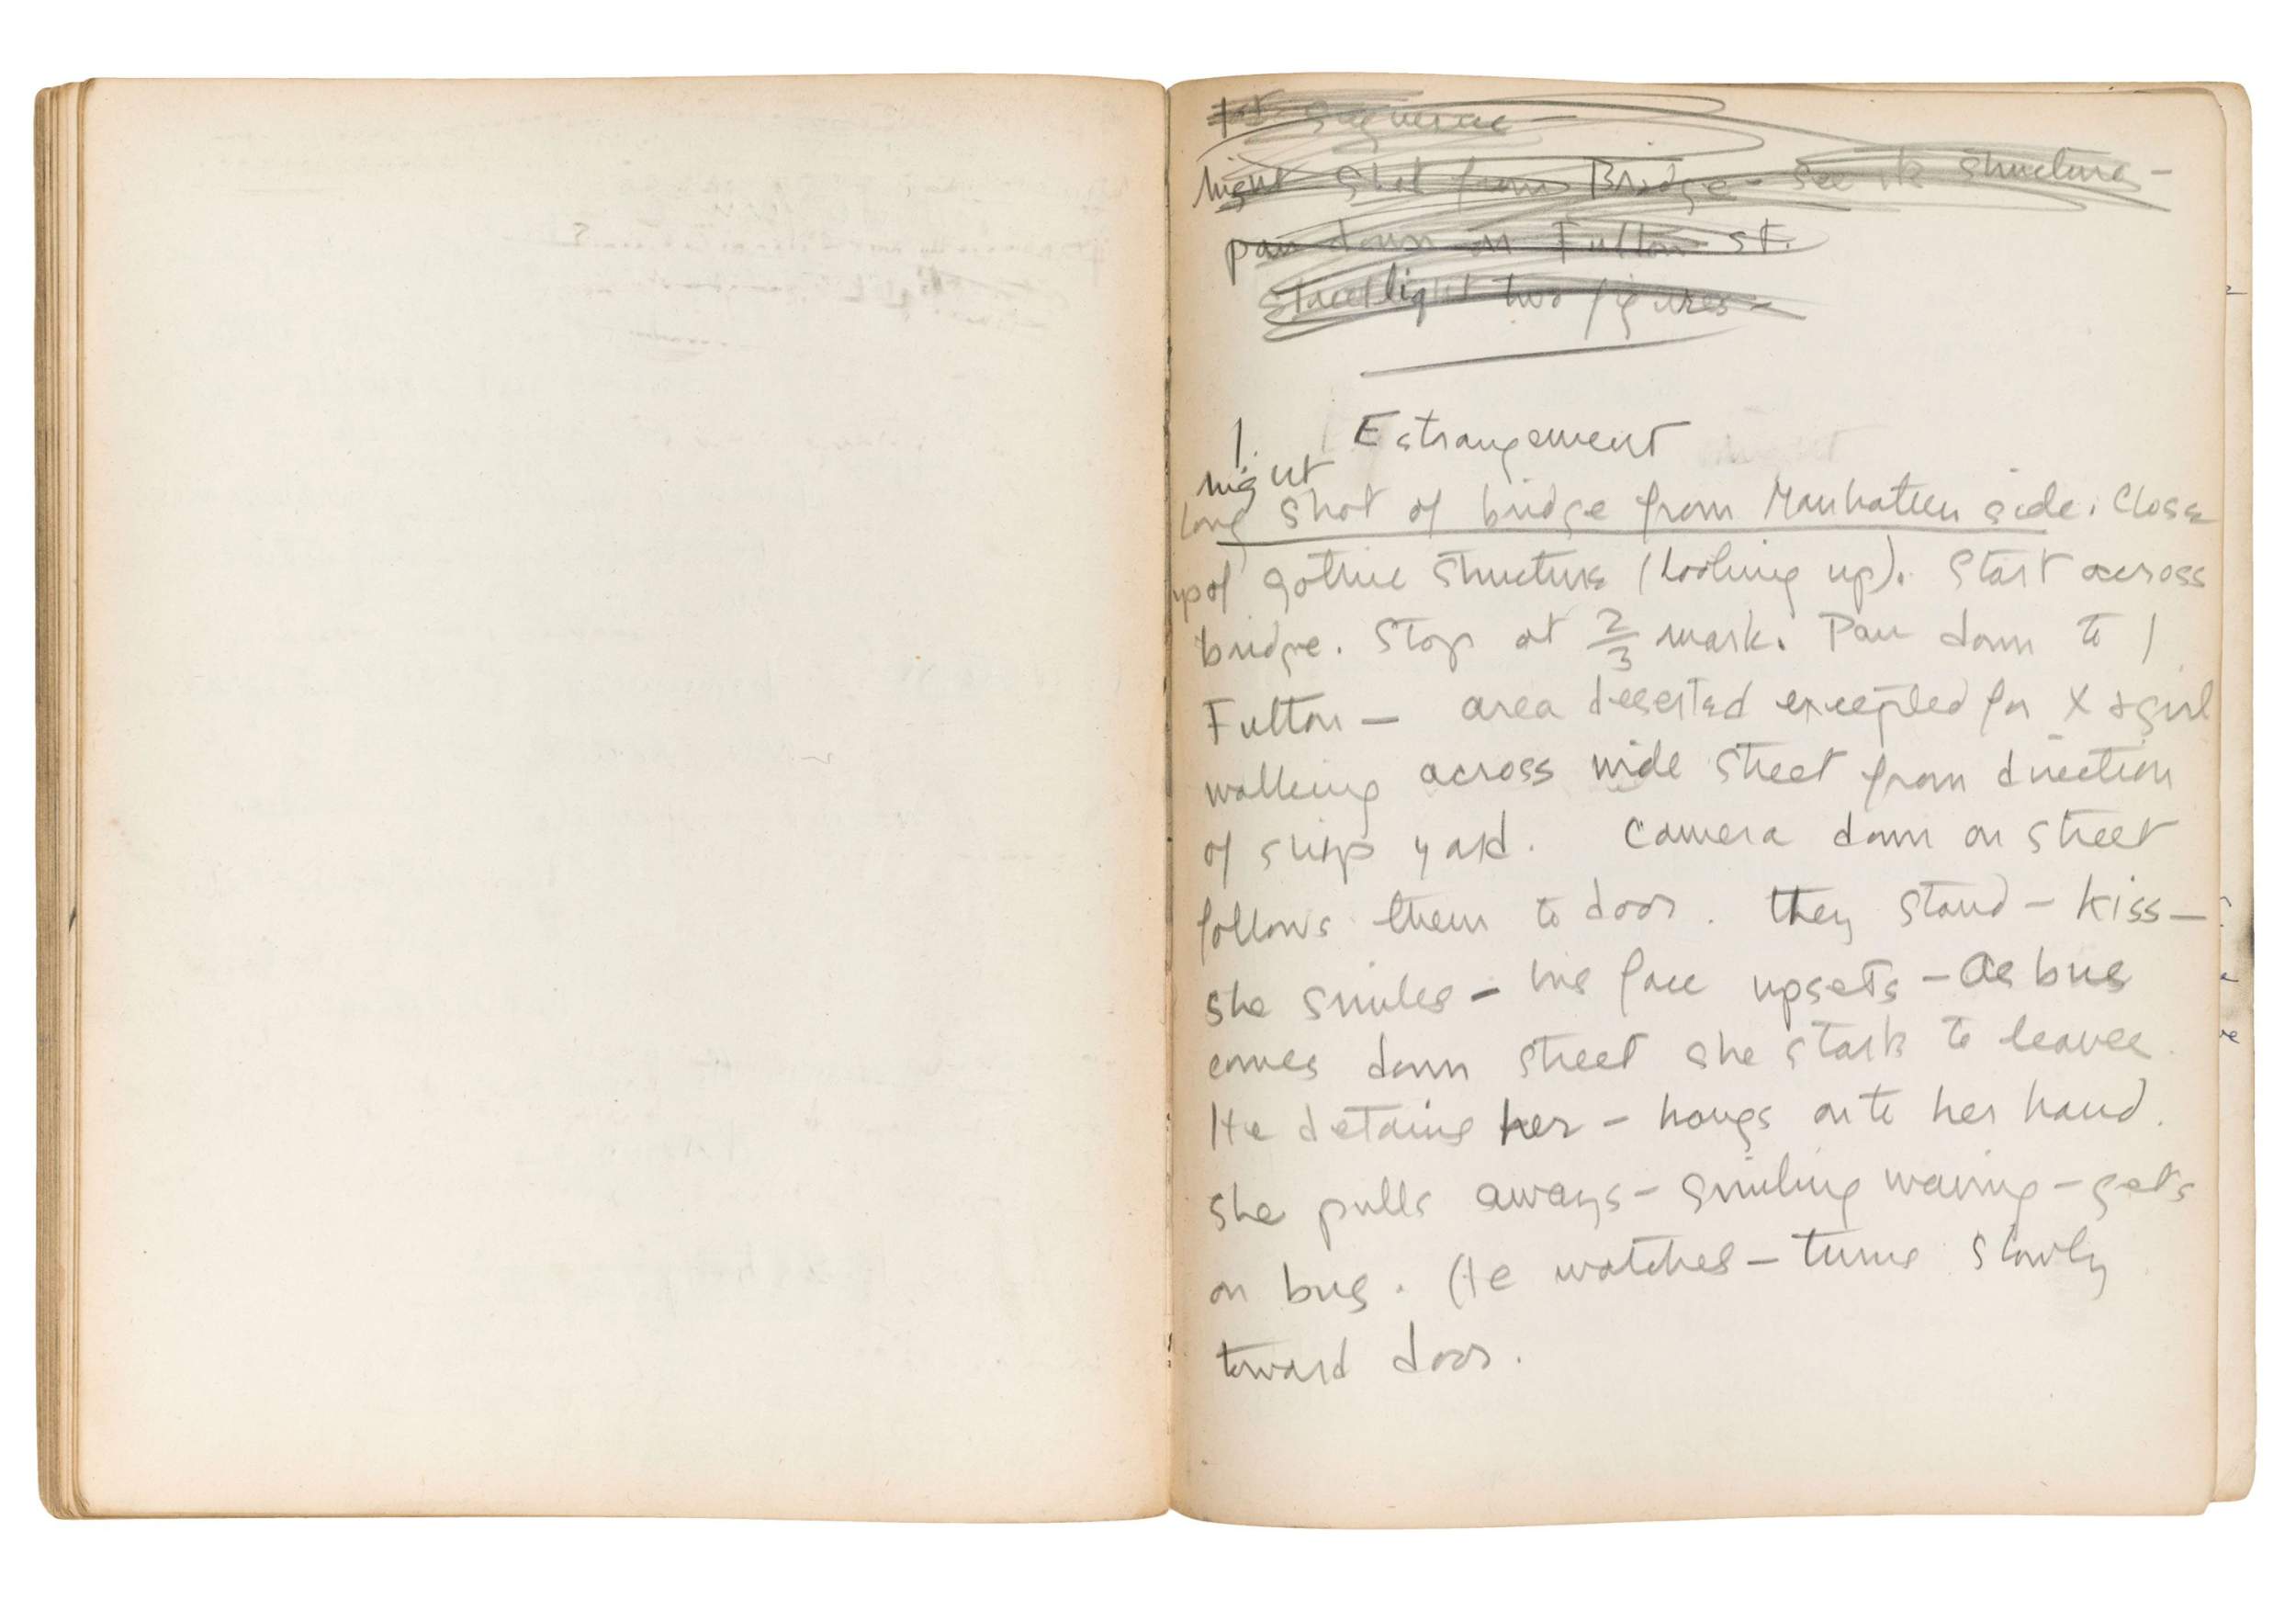 1st Sequence –
night shot from Bridge – see structure –
pan down on Fulton St.
Streetlight two figures –
1. Estrangement
night
long shot of bridge from Manhatten side. Close
up of gothic structure (looking up). Start across
bridge. Stop at 2/3 mark. Pan down to 1
Fulton — area deserted excepted for X & girl
walking across wide street from direction
of ship yard. Camera down on street
follows them to door. they stand – kiss –
she smiles – his face upsets – As bus
comes down street she starts to leave
He detains her – hangs onto her hand.
she pulls aways – smiling waving – gets
on bus. He watches – turns slowly
toward door.